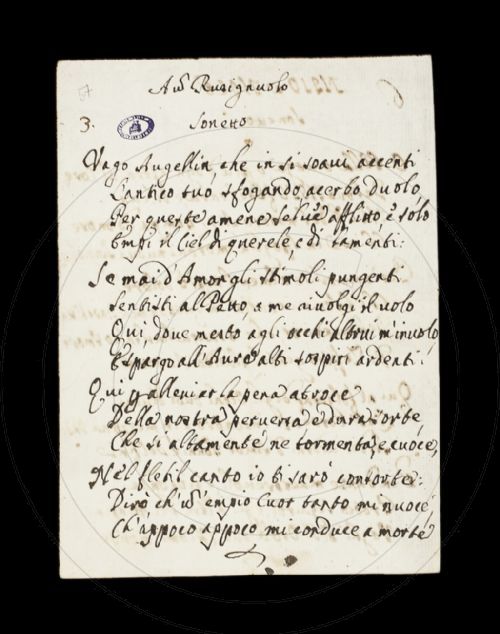 57
Ad un Rusignuolo
3.
Sonetto
Vago Augellin, che in sì soavi accenti
L'antico tuo, sfogando, acerbo duolo,
Per queste amene selve afflitto, e solo
Empi il Ciel di querele, e di lamenti:
Se mai d'Amor gli stimoli pungenti
Sentisti al Petto, a me rivolgi il volo
Qui, dove mesto agli occhi altrui m'involo,
E spargo all'Aure alti sospiri ardenti.
Qui p alleviar la pena atroce
Della nostra perversa e dura sorte
Che sì altamente ne tormenta, e cuoce,
Nel flebil canto io ti sarò consorte:
Dirò ch'un empio Cuor tanto mi nuoce
Ch'appoco appoco mi conduce a morte